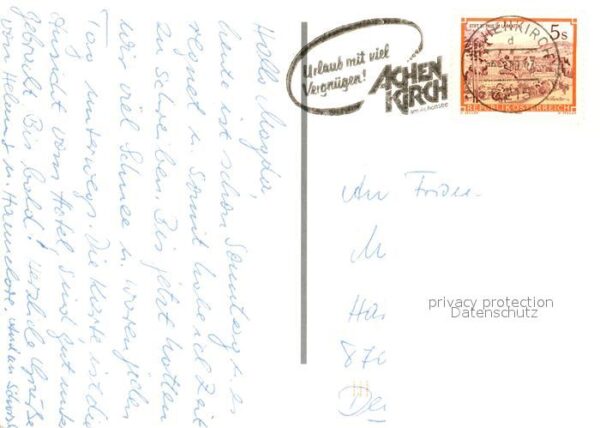 Hallo Magda,
heute ist schon Sonntag u. es
regnet u. somit habe ich Zeit
zu schreiben. Bis jetzt hatten
wir viel Schnee u. waren jeden
Tag unterwegs. Die Karte ist die
Ansicht vom Hotel, sind gut unter
gebracht. Bis bald! Herzliche Grüße
von Helmut u. Hannelore.
Urlaub mit viel
Vergnügen!
ACHEN
KIRCH
am Achensee
5s
REPUBLIK ÖSTERREICH
An
M
Ha
87
De
privacy protection
Datenschutz